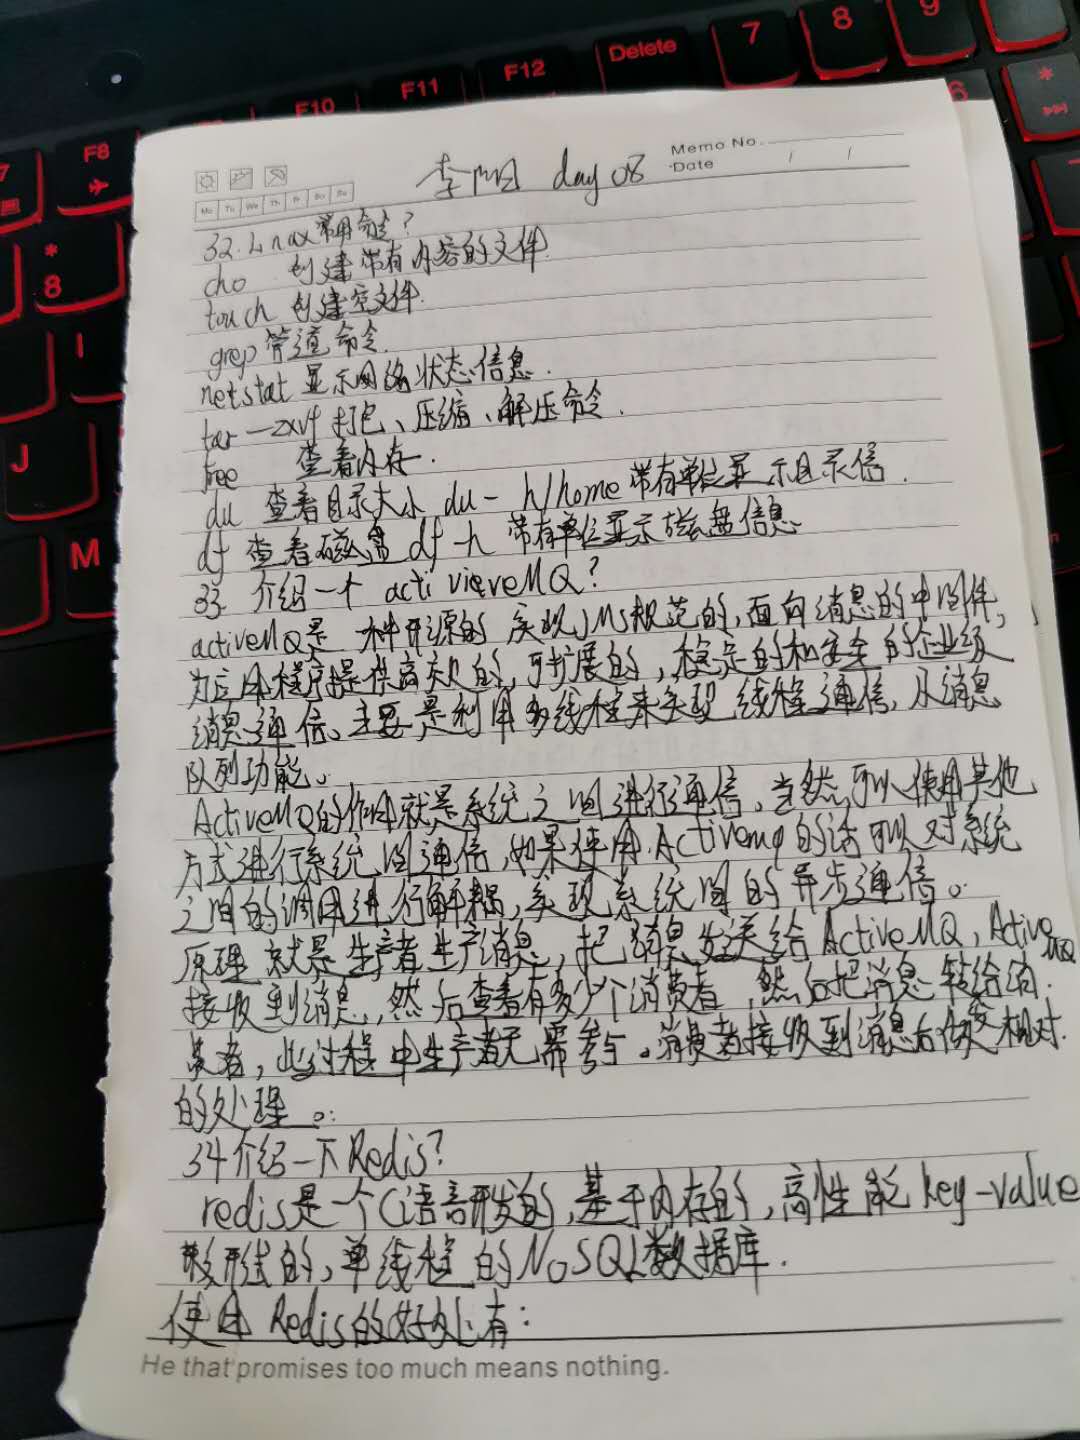 7
8
9
Delete
F12
F11
F10
F8
6
*
8
I
J
M
Memo No.
Date / /
Mo Tu We Th Fr Sa Su
李 day 08
32. Linax常用命令?
cho 创建带有内容的文件.
touch 创建空文件.
grep 管道命令.
netstat 显示网络状态信息.
tar —zxvf 打包、压缩、解压命令.
free 查看内存.
du 查看目录大小 du - h/home 带有单位显示目录信.
df 查看磁盘 df -h 带有单位显示磁盘信息
33. 介绍一个 acti vieveMQ?
activeMQ是 一种开源的 实现JMS规范的,面向消息的中间件,
为应用程序提供高效的,可扩展的,稳定的和安全的企业级
消息通信。主要是利用多线程来实现 线程通信,从消息
队列功能。
ActiveMQ的作用就是系统之间进行通信,当然,可以使用其他
方式进行系统间通信,如果使用.Activemq的话可以对系统
之间的调用进行解耦,实现系统间的异步通信。
原理 就是生产者生产消息,把消息发送给ActiveMQ,ActiveMQ
接收到消息,然后查看有多少个消费者,然后把消息转给消.
费者,此过程中生产者无需参与。消费者接收到消息后做相对.
的处理。
34介绍一下Redis?
redis是一个C语言开发的,基于内存的,高性能key-value
形式的,单线程的NoSQL数据库.
使用 Redis的好处有:
He that promises too much means nothing.